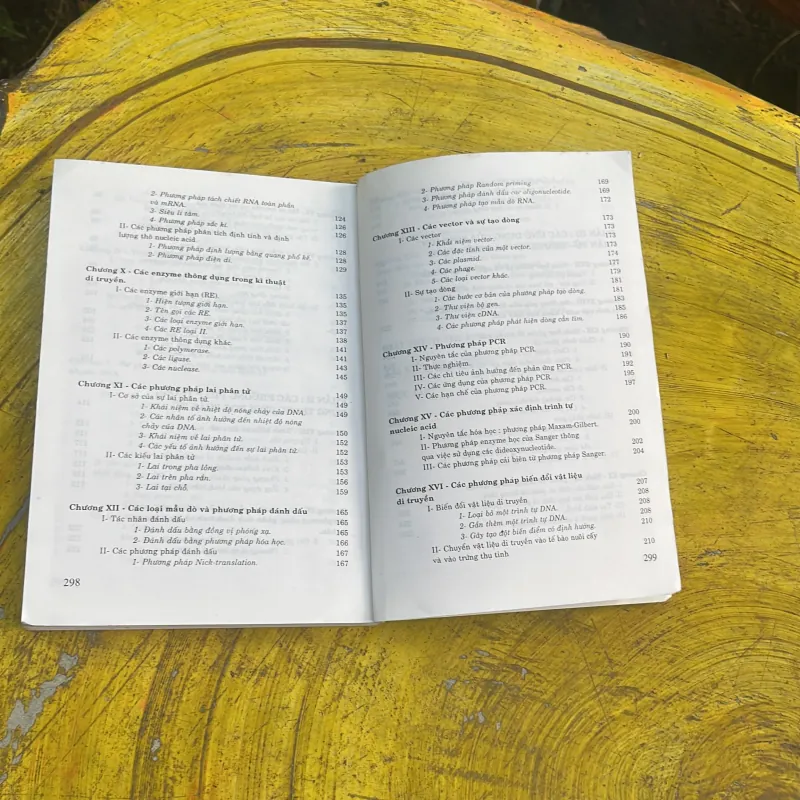 2- Phương pháp tách chiết RNA toàn phần
và mRNA. 124
3- Siêu li tâm. 126
4- Phương pháp sắc kí. 126
II- Các phương pháp phân tích định tính và định
lượng thô nucleic acid. 128
1- Phương pháp định lượng bằng quang phổ kế. 128
2- Phương pháp điện di. 129
Chương X - Các enzyme thông dụng trong kĩ thuật
di truyền. 135
I- Các enzyme giới hạn (RE). 135
1- Hiện tượng giới hạn. 135
2- Tên gọi các RE. 137
3- Các loại enzyme giới hạn. 137
4- Các RE loại II. 138
II- Các enzyme thông dụng khác. 141
1- Các polymerase. 141
2- Các ligase. 143
3- Các nuclease. 145
Chương XI - Các phương pháp lai phân tử 149
I- Cơ sở của sự lai phân tử. 149
1- Khái niệm về nhiệt độ nóng chảy của DNA. 149
2- Các nhân tố ảnh hưởng đến nhiệt độ nóng
chảy của DNA. 150
3- Khái niệm về lai phân tử. 152
4- Các yếu tố ảnh hưởng đến sự lai phân tử. 152
II- Các kiểu lai phân tử 153
1- Lai trong pha lỏng. 153
2- Lai trên pha rắn. 156
3- Lai tại chỗ. 159
Chương XII - Các loại mẫu dò và phương pháp đánh dấu 165
I- Tác nhân đánh dấu 165
1- Đánh dấu bằng đồng vị phóng xạ. 165
2- Đánh dấu bằng phương pháp hóa học. 166
II- Các phương pháp đánh dấu 167
1- Phương pháp Nick translation. 167
298
2- Phương pháp Random priming. 169
3- Phương pháp đánh dấu các oligonucleotide. 169
4- Phương pháp tạo mẫu dò RNA. 172
Chương XIII - Các vector và sự tạo dòng 173
I- Các vector 173
1- Khái niệm vector. 173
2- Các đặc tính của một vector. 173
3- Các plasmid. 174
4- Các phage. 177
5- Các loại vector khác. 179
II- Sự tạo dòng 181
1- Các bước cơ bản của phương pháp tạo dòng. 181
2- Thư viện bộ gen. 183
3- Thư viện cDNA. 185
4- Các phương pháp phát hiện dòng cần tìm. 186
Chương XIV - Phương pháp PCR 190
I- Nguyên tắc của phương pháp PCR. 190
II- Thực nghiệm. 191
III- Các chỉ tiêu ảnh hưởng đến phản ứng PCR. 192
IV- Các ứng dụng của phương pháp PCR. 195
V- Các hạn chế của phương pháp PCR. 197
Chương XV - Các phương pháp xác định trình tự
nucleic acid 200
I- Nguyên tắc hóa học : phương pháp Maxam-Gilbert. 200
II- Phương pháp enzyme học của Sanger thông
qua việc sử dụng các dideoxynucleotide. 202
III- Các phương pháp cải biên từ phương pháp Sanger. 204
Chương XVI - Các phương pháp biến đổi vật liệu
di truyền 207
I- Biến đổi vật liệu di truyền 208
1- Loại bỏ một trình tự DNA. 208
2- Gắn thêm một trình tự DNA. 208
3- Gây tạo đột biến điểm có định hướng. 210
II- Chuyển vật liệu di truyền vào tế bào nuôi cấy
và vào trứng thụ tinh 210
299